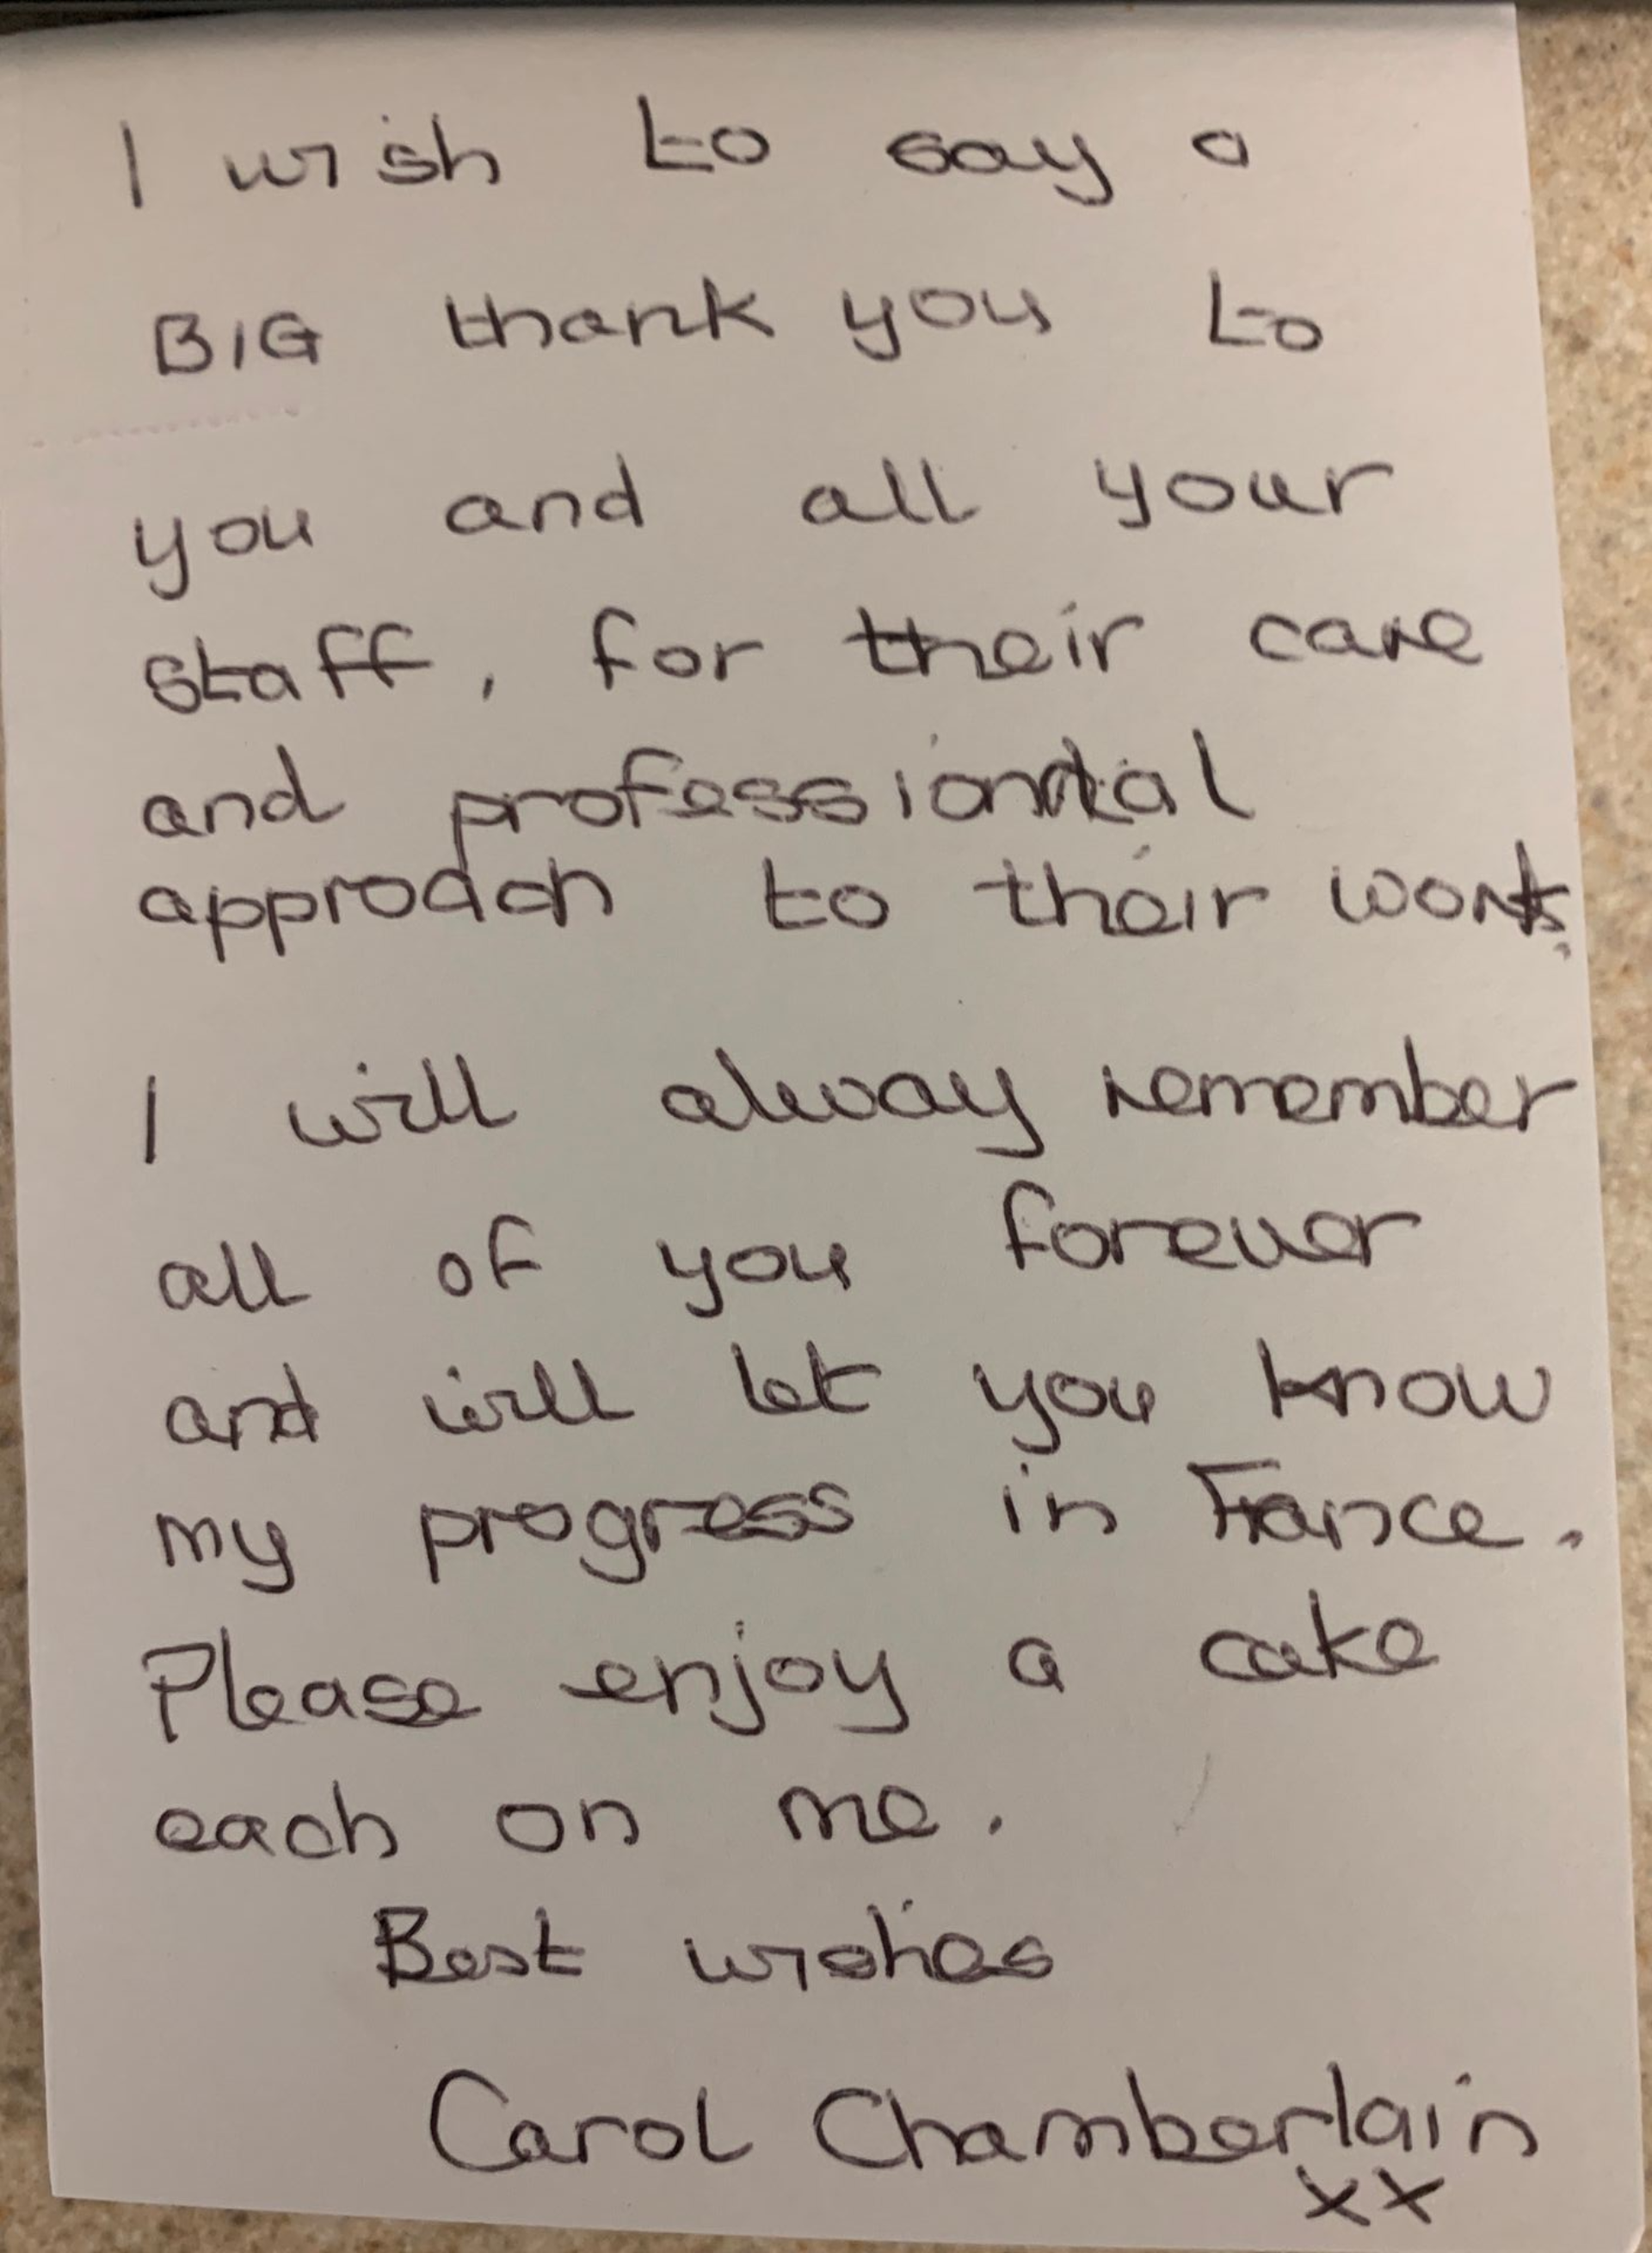 I wish to say a
BIG thank you to
you and all your
staff, for their care
and professional
approach to their work.
I will alway remember
all of you forever
and will let you know
my progress in France.
Please enjoy a cake
each on me.
Best wishes
Carol Chamberlain
xx